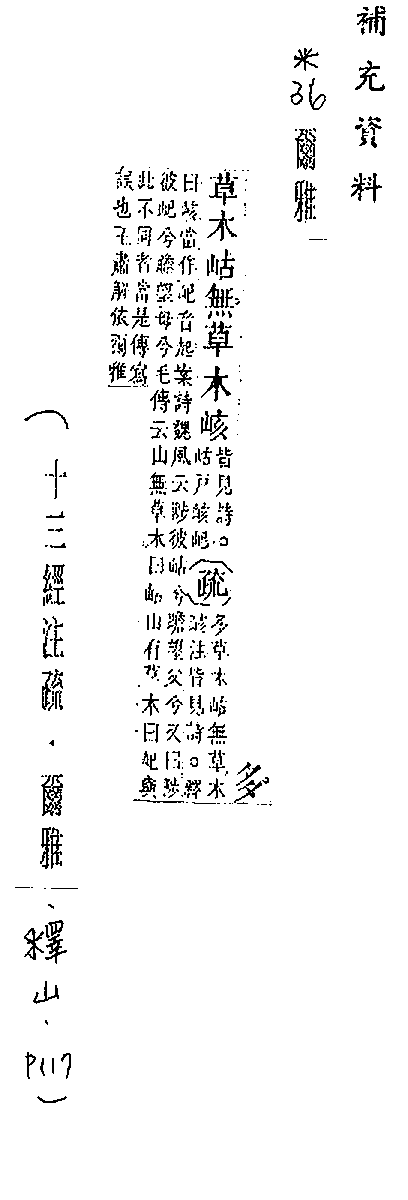 補充資料
※36 爾雅
多草木岵無草木峐
皆見詩。
岵戶峐屺
疏
多草木岵無草木
峐注皆見詩。釋
曰峐當作屺音起案詩魏風云陟彼岵兮瞻望父兮又曰陟
彼屺兮瞻望母兮毛傳云山無草木曰岵山有草木曰屺與
此不同者當是傳寫
誤也王肅解依爾雅
(十三經注疏.爾雅、釋山、P117)